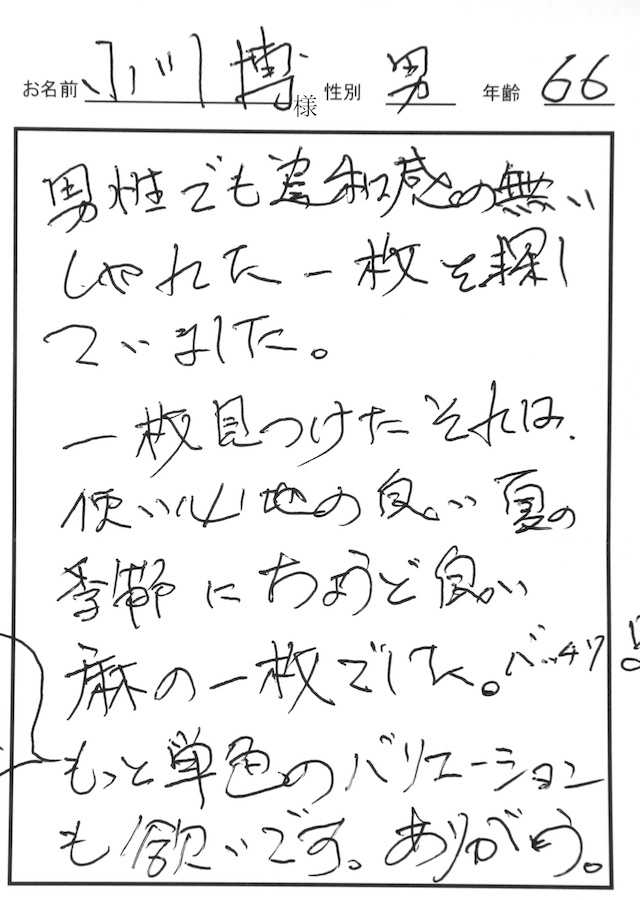 お名前 小川 博 様 性別 男 年齢 66
男性でも違和感の無い
しゃれた一枚を探し
ていました。
一枚見つけたそれは、
使い心地の良い夏の
季節にちょうど良い
麻の一枚でした。バッチリ!
もっと単色のバリエーション
も欲いです。ありがとう。